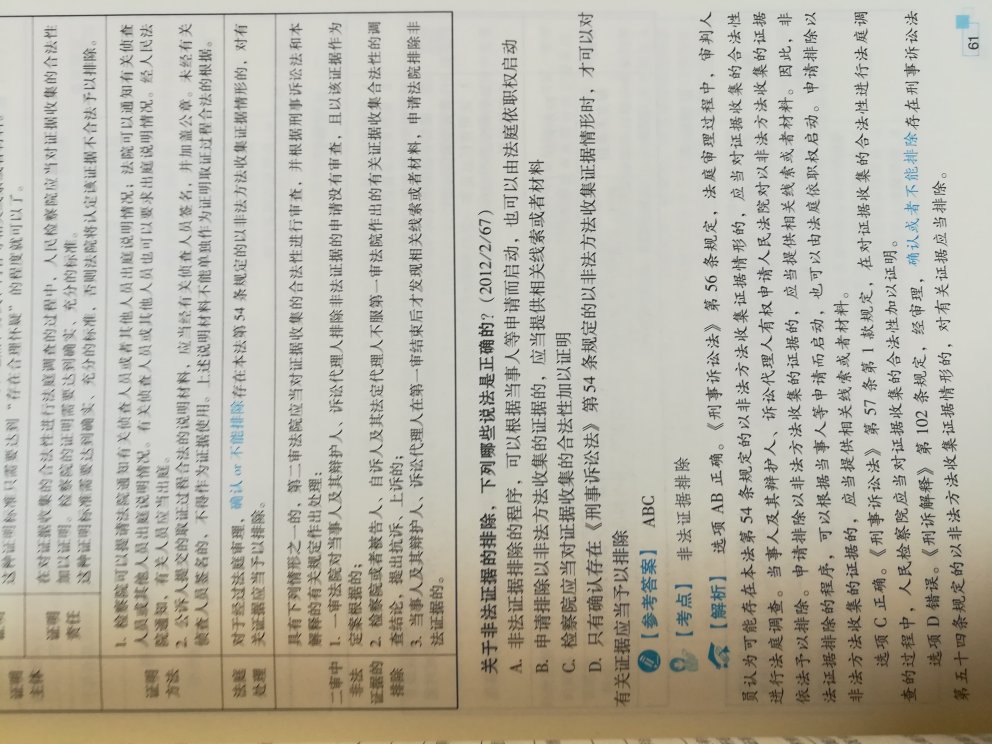 这种证明标准只需要达到“存在合理怀疑”的程度就可以了。
证明
主体
证明
责任
在对证据收集的合法性进行法庭调查的过程中，人民检察院应当对证据收集的合法性
加以证明。检察院的证明需要达到确实、充分的标准。
这种证明标准需要达到确实、充分的标准，否则法院将认定该证据不合法予以排除。
证明
方法
1. 检察院可以提请法院通知有关侦查人员或者其他人员出庭说明情况；法院可以通知有关侦查
人员或其他人员出庭说明情况。有关侦查人员或其他人员也可以要求出庭说明情况。经人民法
院通知，有关人员应当出庭。
2. 公诉人提交的取证过程合法的说明材料，应当经有关侦查人员签名，并加盖公章。未经有关
侦查人员签名的，不得作为证据使用。上述说明材料不能单独作为证明取证过程合法的根据。
法庭
处理
对于经过法庭审理，确认 or 不能排除存在本法第 54 条规定的以非法方法收集证据情形的，对有
关证据应当予以排除。
二审中
非法
证据的
排除
具有下列情形之一的，第二审法院应当对证据收集的合法性进行审查，并根据刑事诉讼法和本
解释的有关规定作出处理：
1. 一审法院对当事人及其辩护人、诉讼代理人排除非法证据的申请没有审查，且以该证据作为
定案根据的；
2. 检察院或者被告人、自诉人及其法定代理人不服第一审法院作出的有关证据收集合法性的调
查结论，提出抗诉、上诉的；
3. 当事人及其辩护人、诉讼代理人在第一审结束后才发现相关线索或者材料，申请法院排除非
法证据的。
关于非法证据的排除，下列哪些说法是正确的？（2012/2/67）
A. 非法证据排除的程序，可以根据当事人等申请而启动，也可以由法庭依职权启动
B. 申请排除以非法方法收集的证据的，应当提供相关线索或者材料
C. 检察院应当对证据收集的合法性加以证明
D. 只有确认存在《刑事诉讼法》第 54 条规定的以非法方法收集证据情形时，才可以对
有关证据应当予以排除
【参考答案】 ABC
【考点】 非法证据排除
【解析】 选项 AB 正确。《刑事诉讼法》第 56 条规定，法庭审理过程中，审判人
员认为可能存在本法第 54 条规定的以非法方法收集证据情形的，应当对证据收集的合法性
进行法庭调查。当事人及其辩护人、诉讼代理人有权申请人民法院对以非法方法收集的证据
依法予以排除。申请排除以非法方法收集的证据的，应当提供相关线索或者材料。因此，非
法证据排除的程序，可以根据当事人等申请而启动，也可以由法庭依职权启动。申请排除以
非法方法收集的证据的，应当提供相关线索或者材料。
选项 C 正确。《刑事诉讼法》第 57 条第 1 款规定，在对证据收集的合法性进行法庭调
查的过程中，人民检察院应当对证据收集的合法性加以证明。
选项 D 错误。《刑诉解释》第 102 条规定，经审理，确认或者不能排除存在刑事诉讼法
第五十四条规定的以非法方法收集证据情形的，对有关证据应当排除。
61